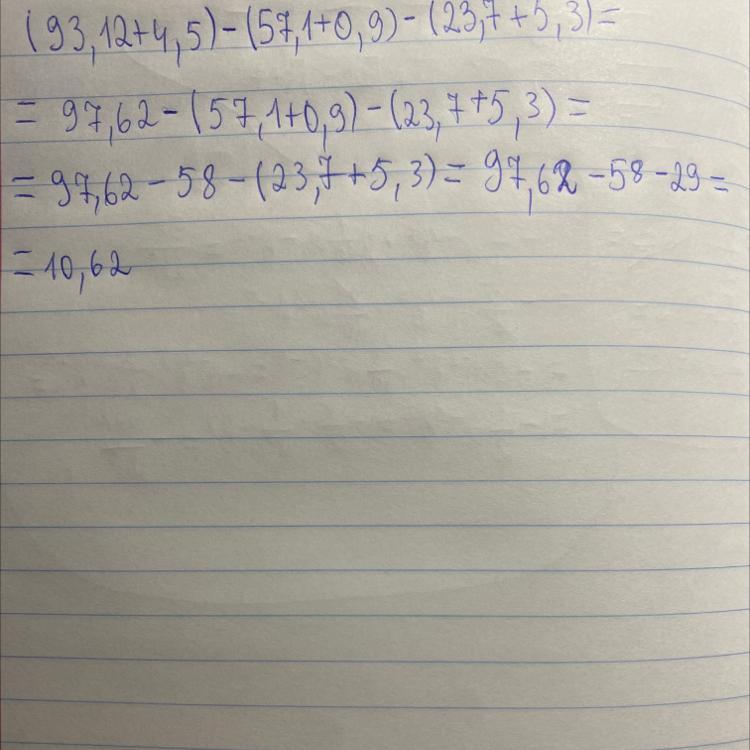 (93,12+4,5)-(57,1+0,9)-(23,7+5,3)=
= 97,62-(57,1+0,9)-(23,7+5,3)=
= 97,62-58-(23,7+5,3)= 97,62-58-29=
= 10,62